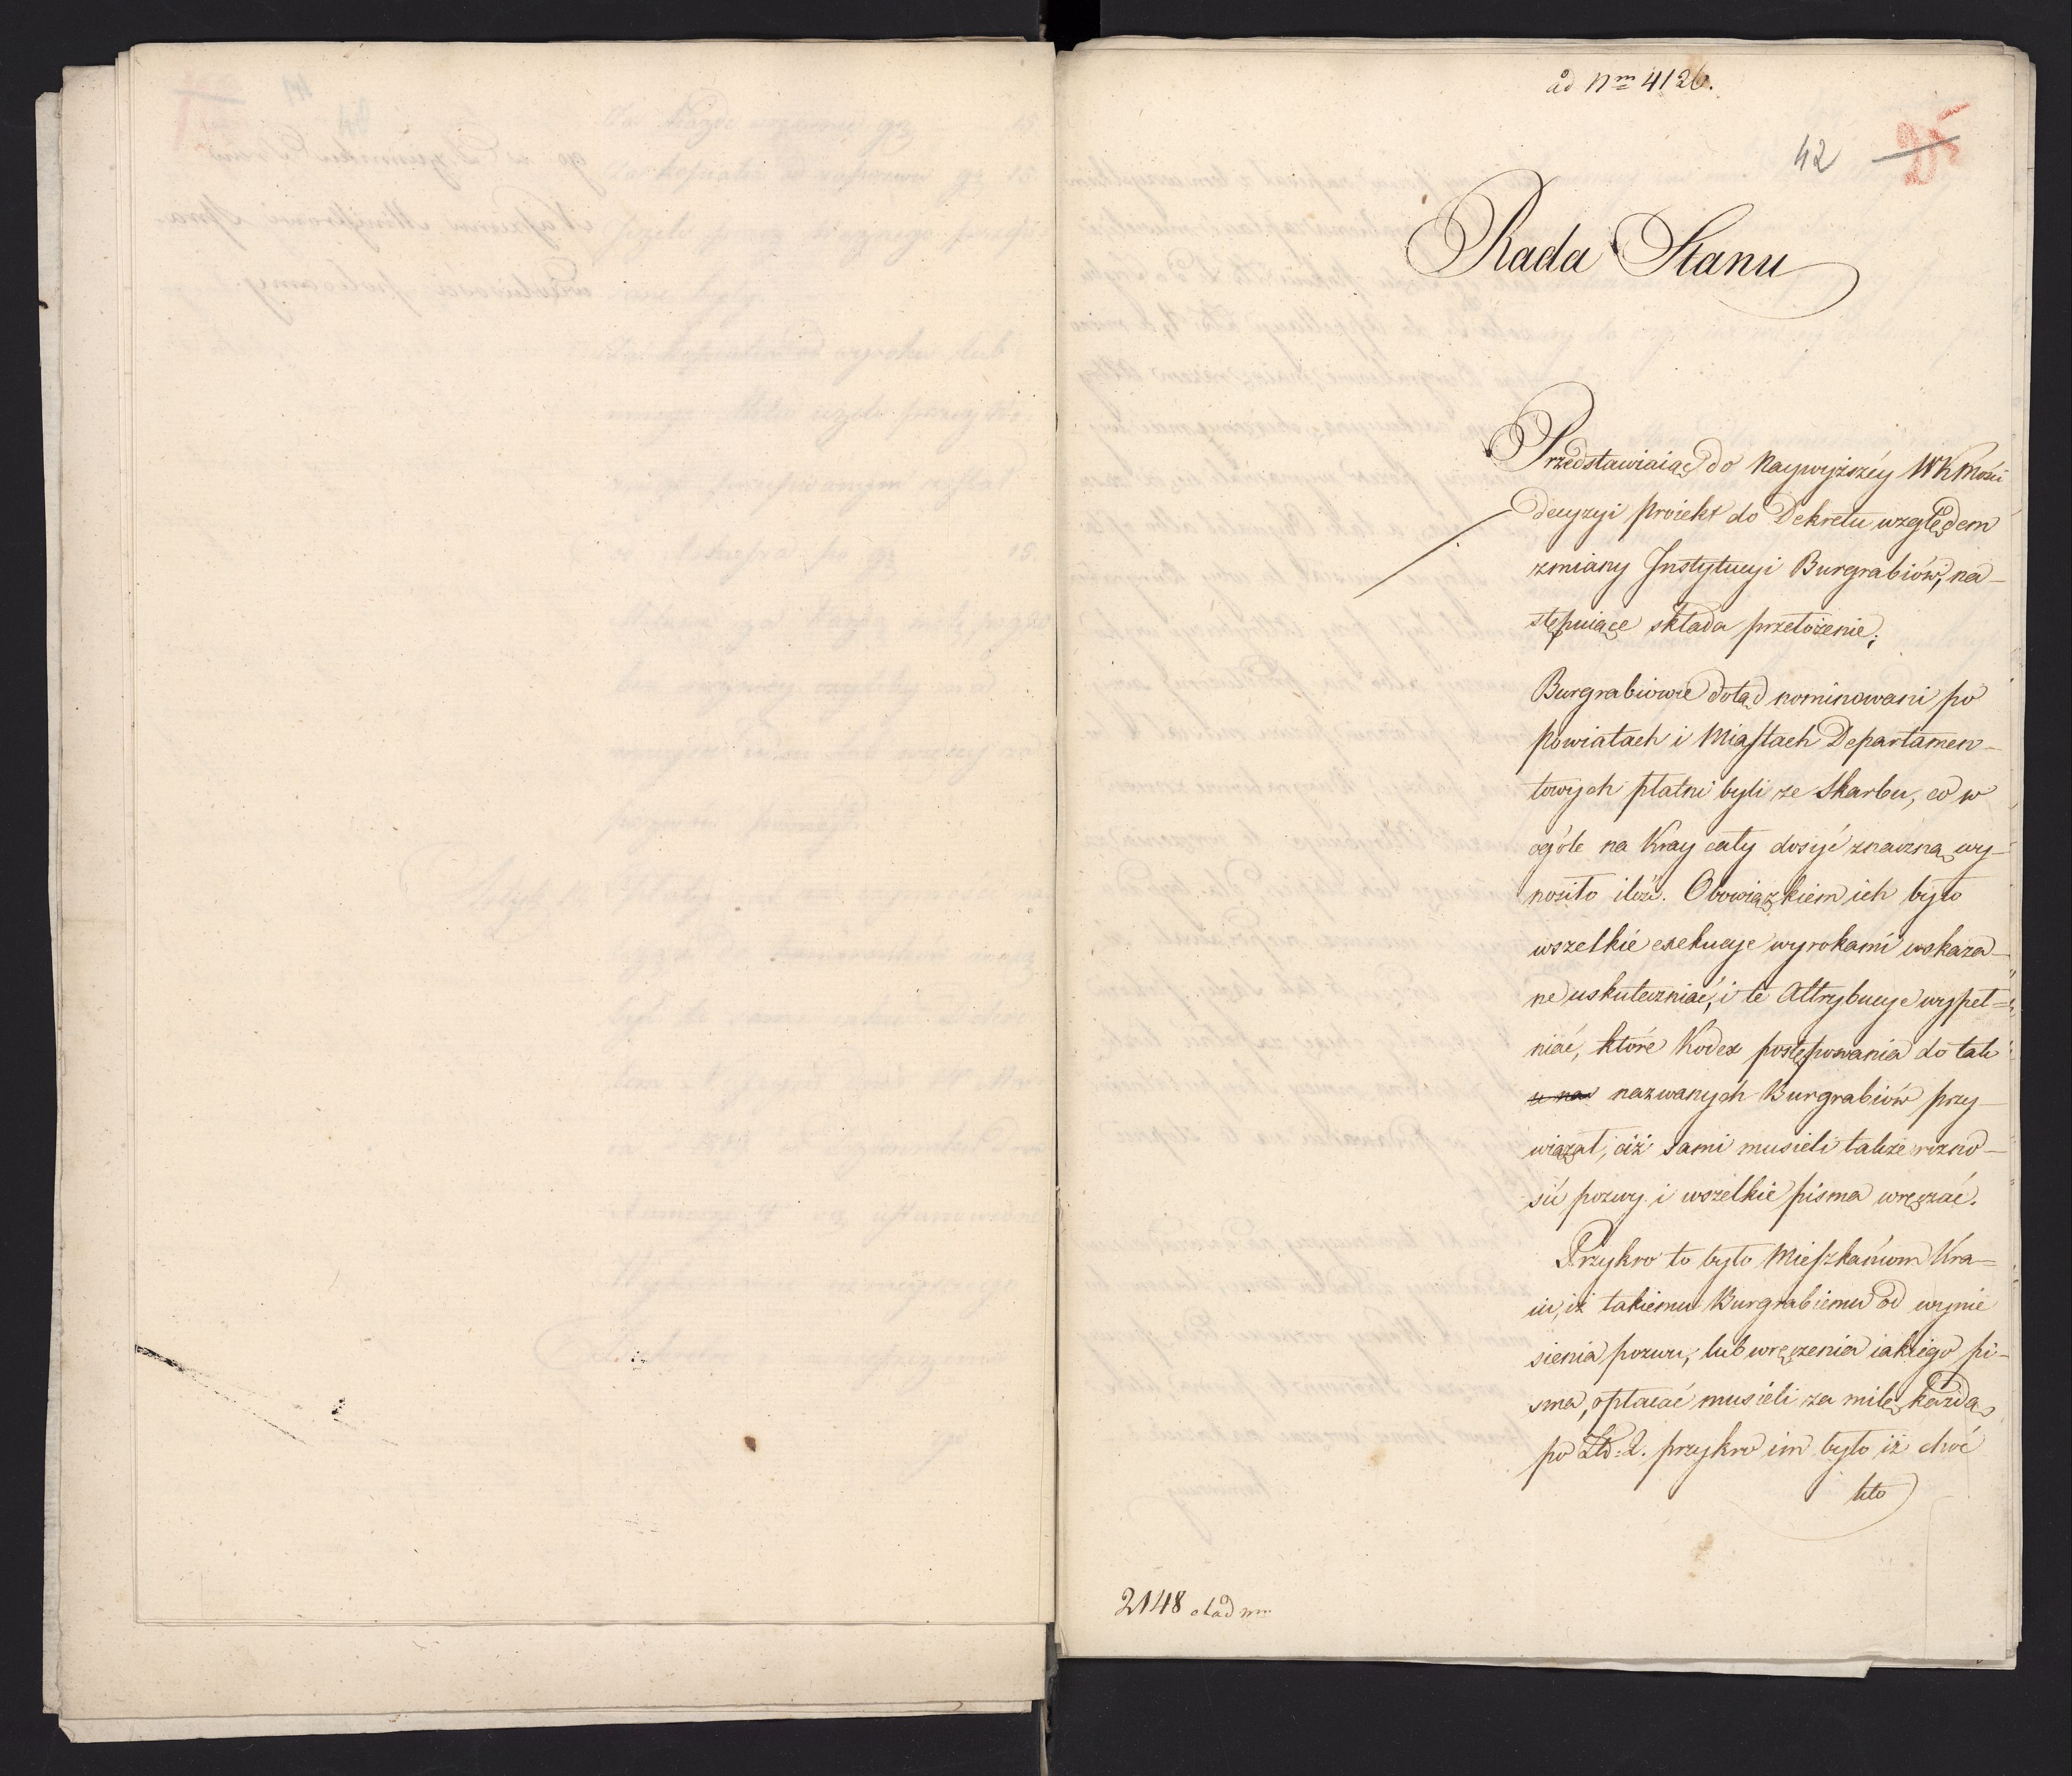 ad Nm 4126.
42
25
Rada Stanu
Przedstawiaiąc do Naywyższéy WKMości
decyzyi proiekt do Dekretu względem
zmiany Instytucyi Burgrabiów, na-
stępuiące składa przełożenie;
Burgrabiowie dotąd nominowani po
Powiatach i Miastach Departamen-
towych płatni byli ze Skarbu, co w
ogóle na Kray cały dosyć znaczną wy-
nosiło ilość. Obowiązkiem ich było
wszelkie exekucye wyrokami wskaza-
ne uskuteczniać, i te Attrybucye wypeł=
niać, które Kodex postępowania do tak
nazwanych Burgrabiów przy-
wiązał, ciż sami musieli także rozno-
sić pozwy i wszelkie pisma wręczać.
Przykro to było Mieszkańcom Kra=
iu, iż takiemu Burgrabiemu od wynie
sienia pozwu, lub wręczenia iakiego pi-
sma, opłacać musieli za milę każdą
po Zło: 2. przykro im było iż choć
kto
2148